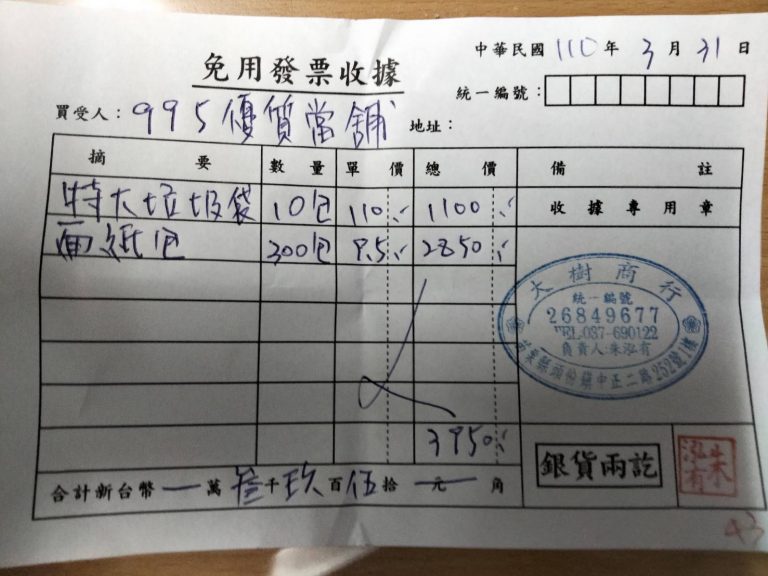 免用發票收據
中華民國 110 年 3 月 31 日
統一編號：
買受人：995優質當舖 地址：
摘要 數量 單價 總價 備註
特大垃圾袋 10包 110 1100
收據專用章
面紙包 300包 9.5 2850
大樹商行
統一編號
26849677
TEL:037-690122
負責人:朱泓有
苗栗縣頭份鎮中正二路252號1樓
3950
銀貨兩訖
朱泓有
合計新台幣 一 萬 叁 千 玖 百 伍 拾 元 角
43